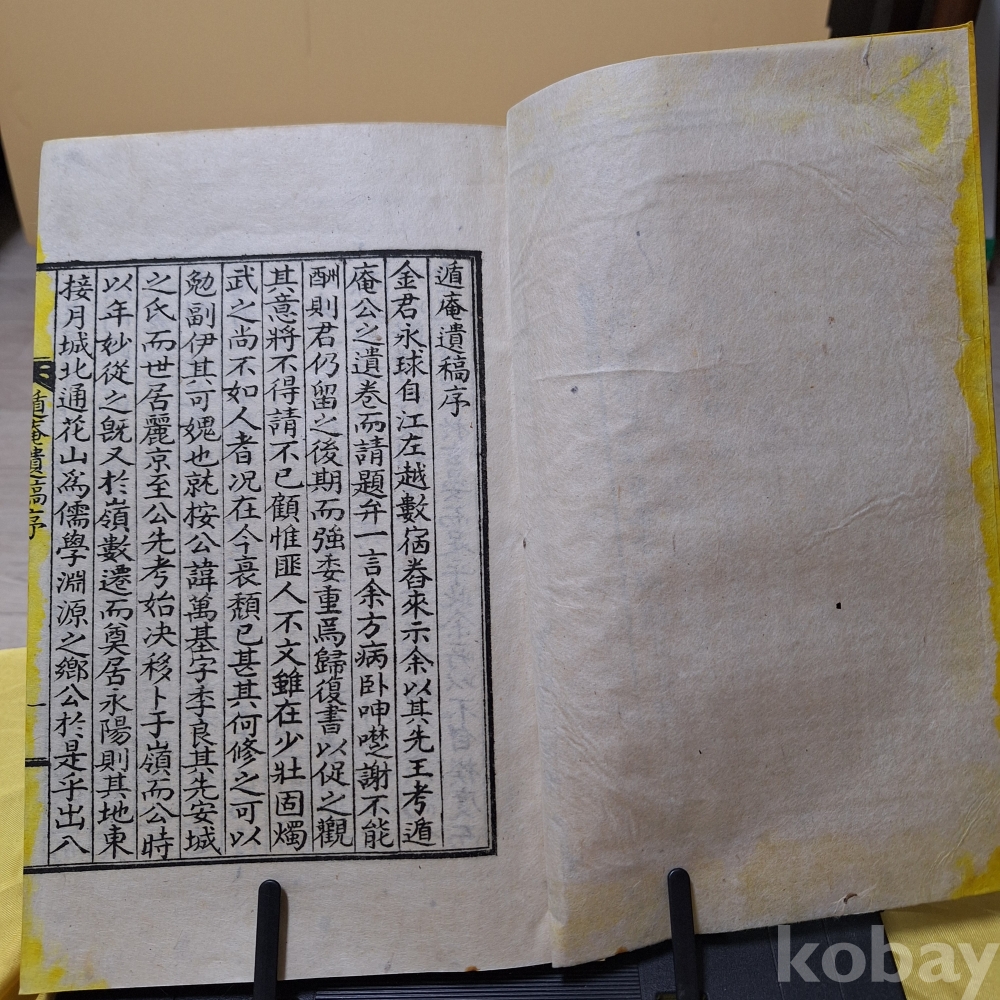 遁庵遺稿序
金君永球自江左越數宿舂來示余以其先王考遁
庵公之遺卷而請題弁一言余方病臥呻囈謝不能
酬則君仍留之後期而強委重焉歸復書以促之觀
其意將不得請不已顧惟匪人不文雖在少壯固燭
武之尚不如人者况在今衰頹已甚其何修之可以
勉副伊其可媿也就按公諱萬基字季良其先安城
之氏而世居麗京至公先考始决移卜于嶺而公時
以年妙從之旣又於嶺數遷而奠居永陽則其地東
接月城北通花山爲儒學淵源之鄕公於是乎出入
遁庵遺稿序
一
kobay